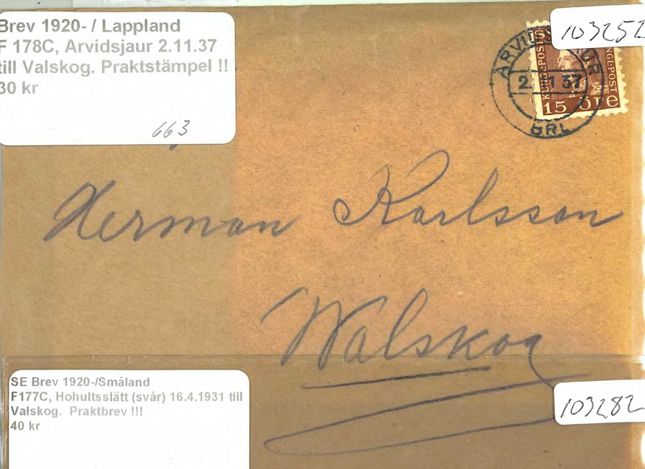 Brev 1920- / Lappland
F 178C, Arvidsjaur 2.11.37
till Valskog. Praktstämpel !!
30 kr
663
103252
ARVIDSJAUR
2. 11 37
GRL
KUNGL.POST
15 ÖRE
Herman Karlsson
Walskog
SE Brev 1920-/Småland
F177C, Hohultsslätt (svår) 16.4.1931 till
Valskog. Praktbrev !!!
40 kr
103282